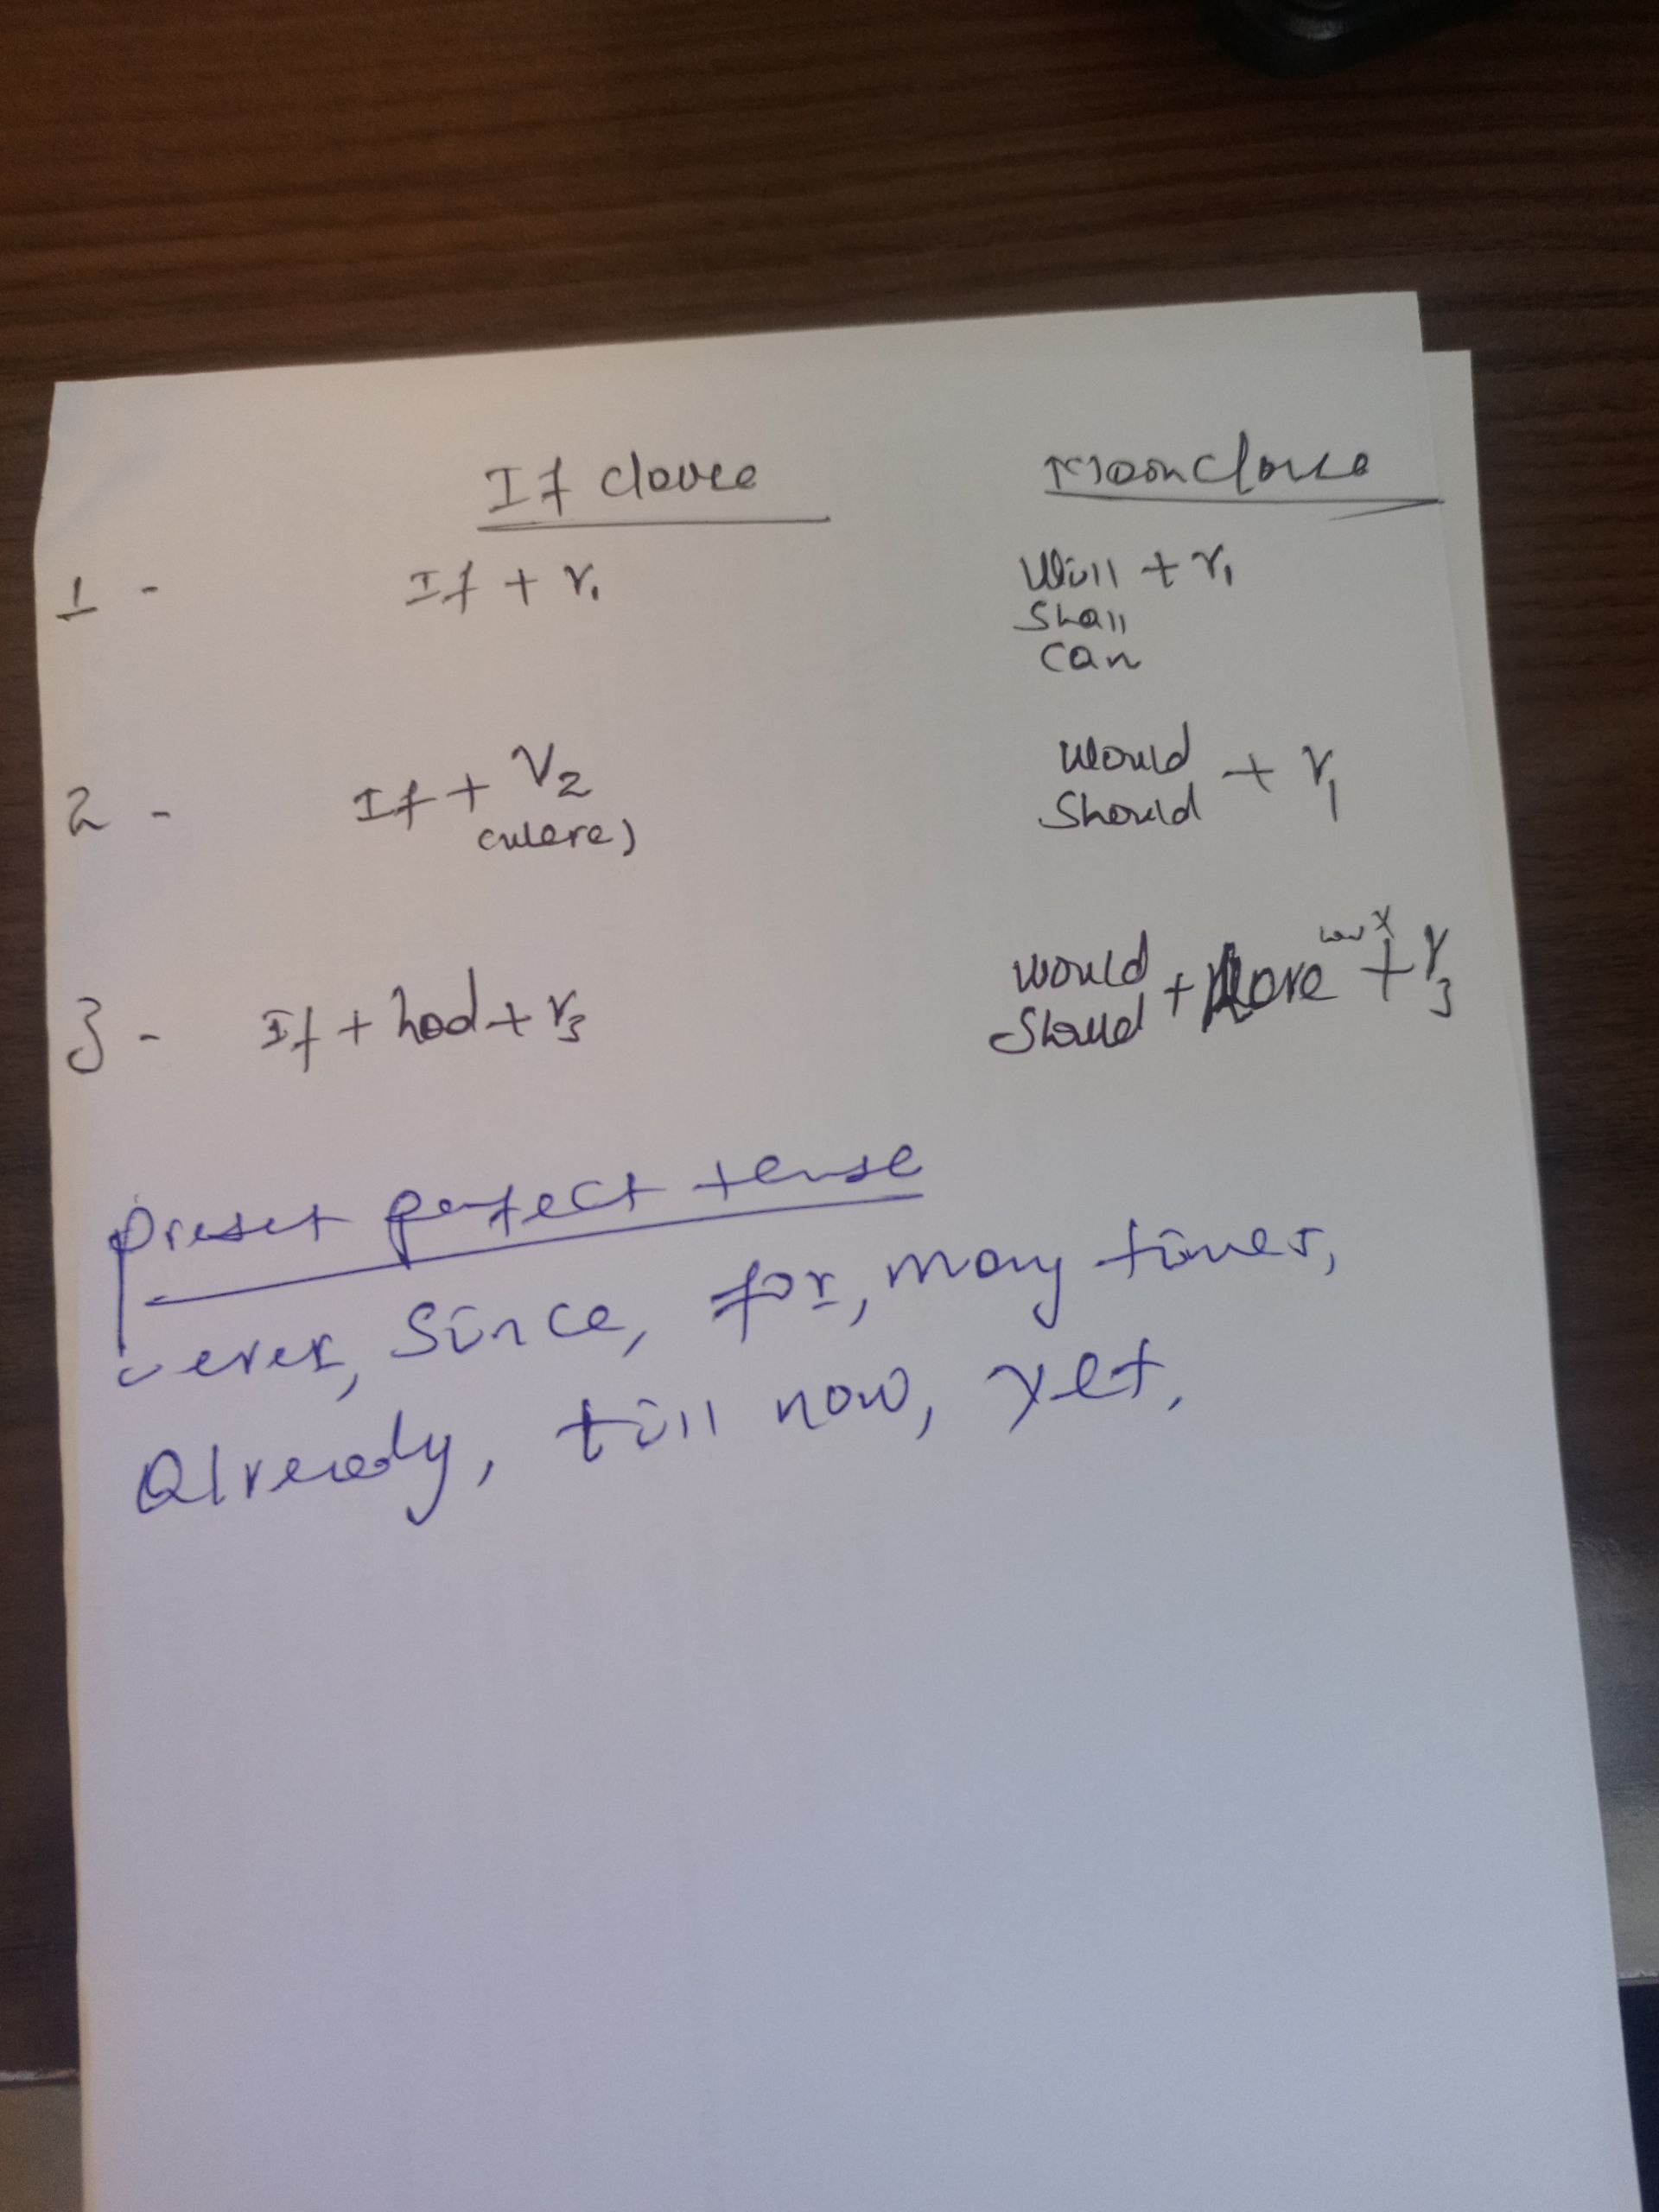 If clause Main clause
1 - If + V1 Will + V1
Shall
can
2 - If + V2 would + V1
(were) Should
3 - If + had + V3 would + have + V3
Should
preset perfect tense
ever, Since, for, many times,
Already, till now, yet,